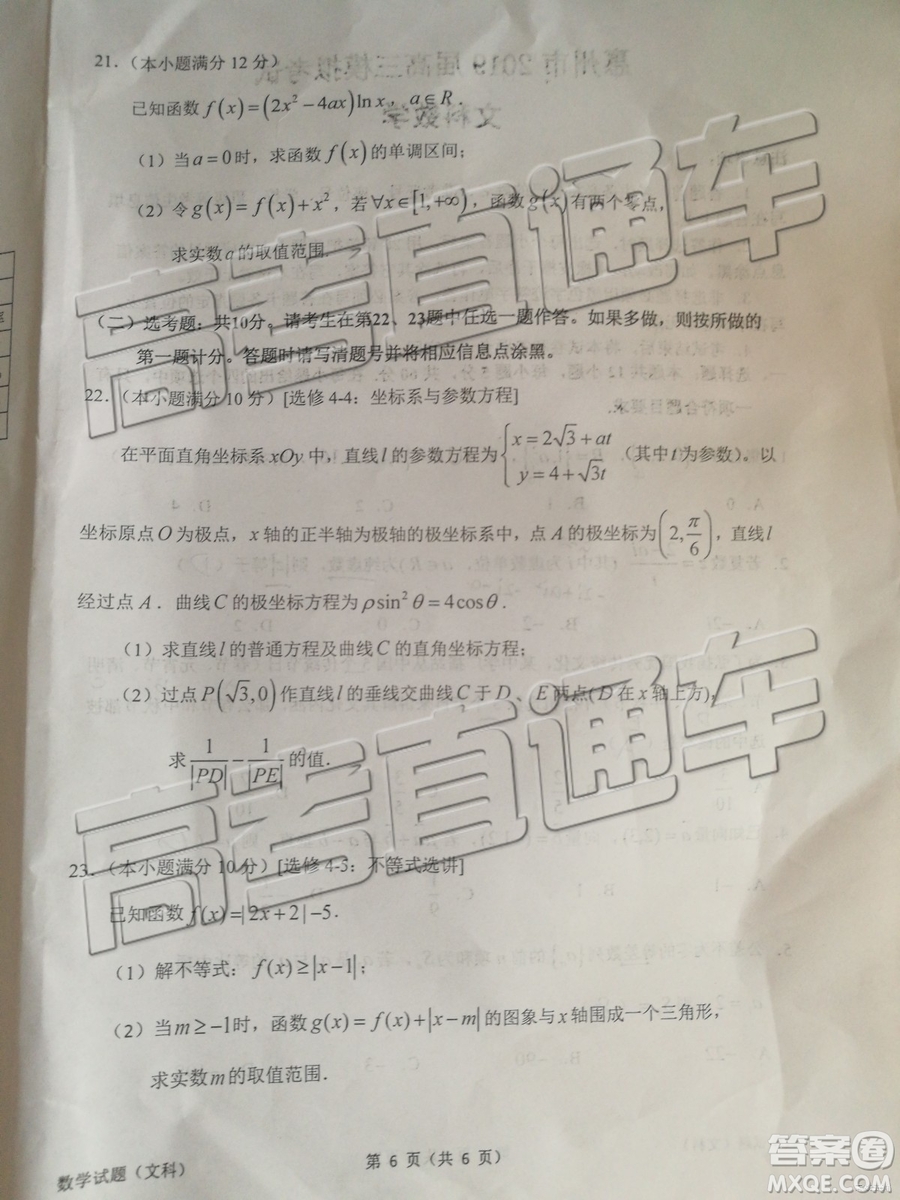 21.（本小题满分12分）
已知函数 f(x)=(2x²-4ax)lnx，a∈R．
（1）当a=0时，求函数f(x)的单调区间；
（2）令g(x)=f(x)+x²，若∀x∈[1,+∞)，函数g(x)有两个零点，
求实数a的取值范围．
（二）选考题：共10分。请考生在第22、23题中任选一题作答。如果多做，则按所做的
第一题计分。答题时请写清题号并将相应信息点涂黑。
22.（本小题满分10分）[选修4-4：坐标系与参数方程]
在平面直角坐标系xOy中，直线l的参数方程为{x=2√3+at
y=4+√3t（其中t为参数）。以
坐标原点O为极点，x轴的正半轴为极轴的极坐标系中，点A的极坐标为(2,π/6)，直线l
经过点A．曲线C的极坐标方程为ρsin²θ=4cosθ．
（1）求直线l的普通方程及曲线C的直角坐标方程；
（2）过点P(√3,0)作直线l的垂线交曲线C于D、E两点(D在x轴上方)，
求1/|PD|-1/|PE|的值．
23.（本小题满分10分）[选修4-5：不等式选讲]
已知函数f(x)=|2x+2|-5．
（1）解不等式：f(x)≥|x-1|；
（2）当m≥-1时，函数g(x)=f(x)+|x-m|的图象与x轴围成一个三角形，
求实数m的取值范围．
数学试题（文科）
第 6 页（共 6 页）
高考直通车
高考直通车
答案圈
MXQE.COM